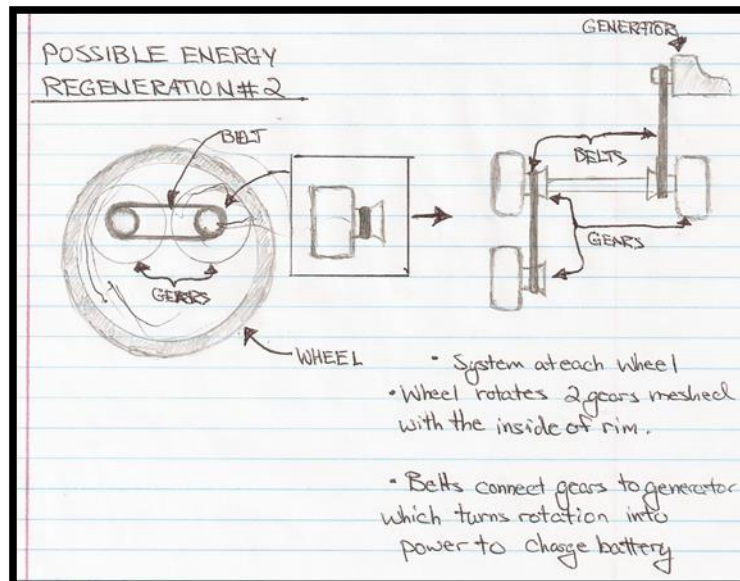 POSSIBLE ENERGY
REGENERATION #2
GENERATOR
BELT
BELTS
GEARS
GEARS
WHEEL
• System at each wheel
• Wheel rotates 2 gears meshed
with the inside of rim.
• Belts connect gears to generator
which turns rotation into
power to charge battery